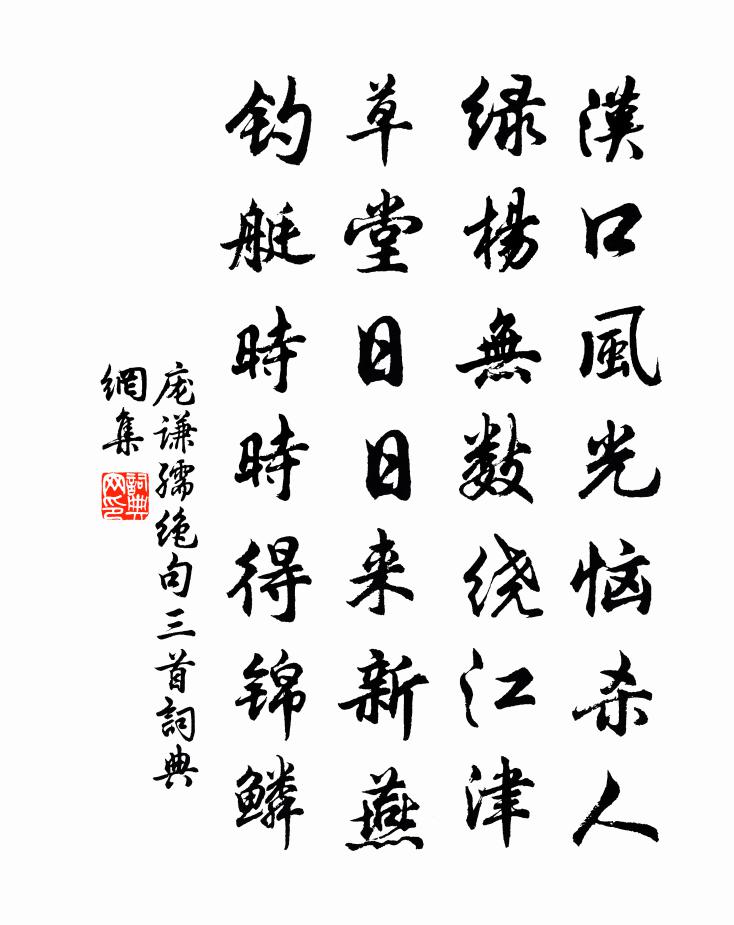 漢口風光恼杀人
绿楊無数绕江津
草堂日日来新燕
钓艇時時得锦鳞
庞谦孺绝句三首詞典
網集
詞典
网印